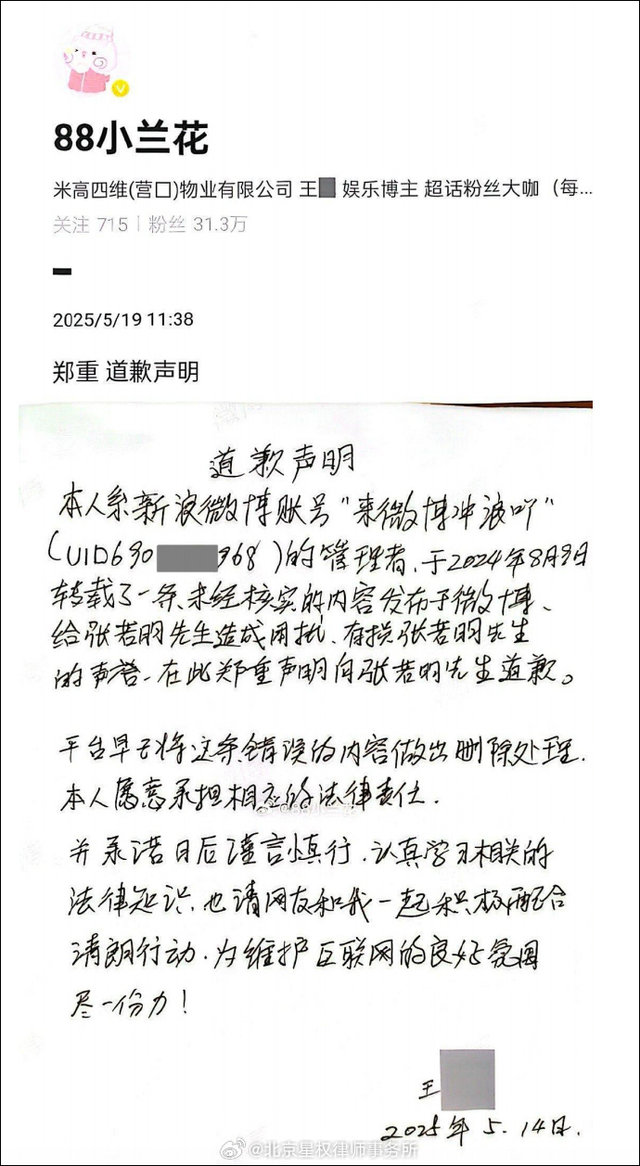 88小兰花
米高四维(营口)物业有限公司 王 娱乐博主 超话粉丝大咖（每...
关注 715 | 粉丝 31.3万
2025/5/19 11:38
郑重 道歉声明
道歉声明
本人系新浪微博账号“来微博冲浪吖”
（UID690 968）的管理者，于2024年8月9日
转载了一条未经核实的内容发布于微博、
给张若昀先生造成困扰、有损张若昀先生
的声誉、在此郑重声明向张若昀先生道歉。
平台早已将这条错误的内容做出删除处理.
本人愿意承担相应的法律责任.
@88小兰花
并承诺日后谨言慎行、认真学习相关的
法律知识、也请网友和我一起积极配合
清朗行动、为维护互联网的良好氛围
尽一份力！
王
2025年 5.14日.
@北京星权律师事务所